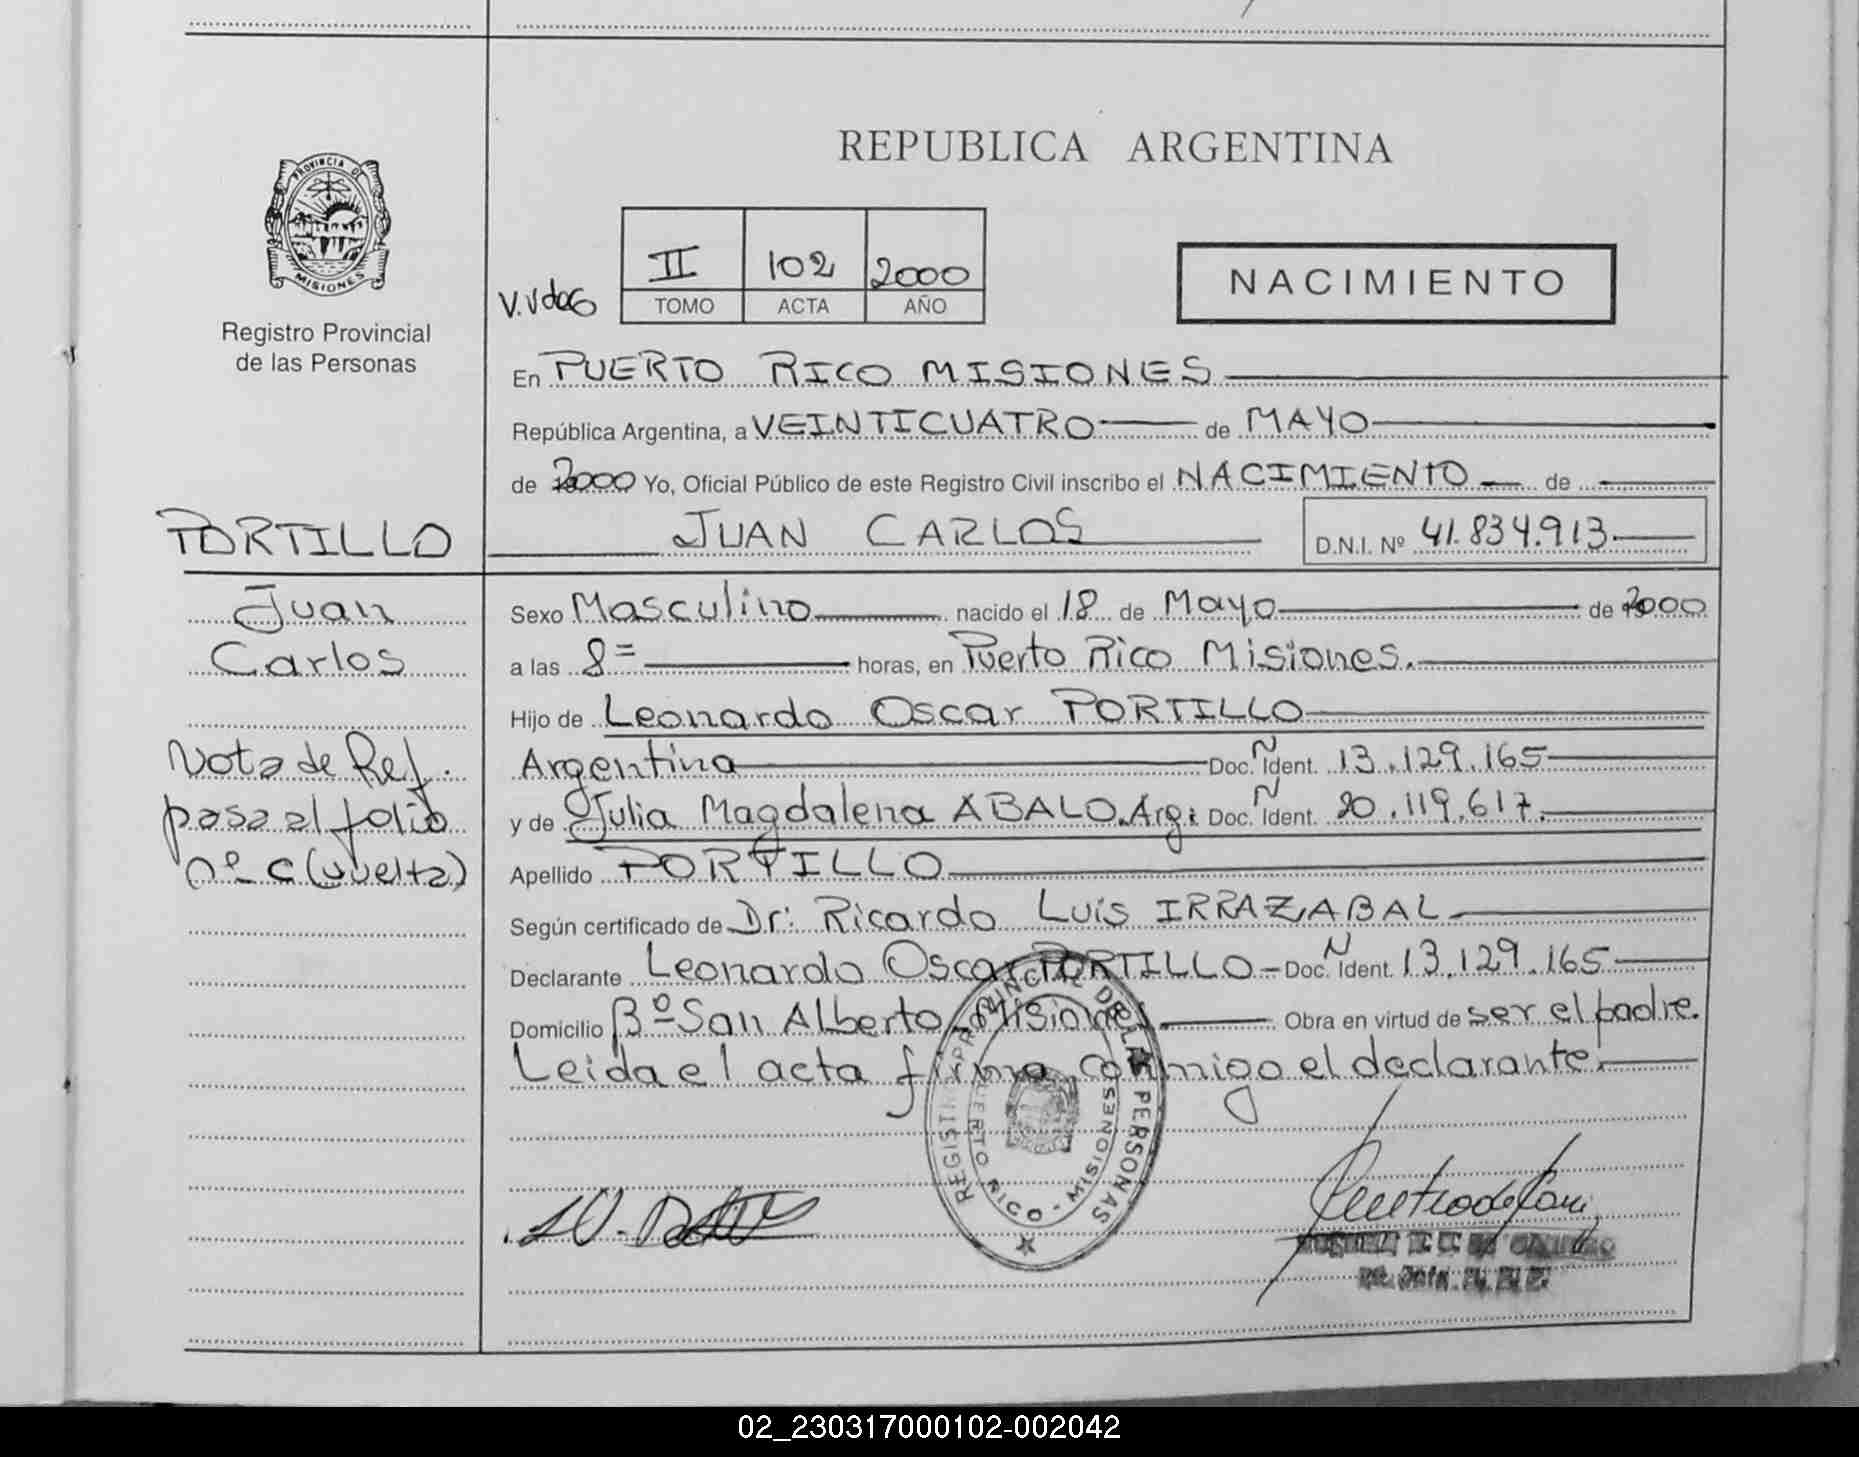 PROVINCIA DE
MISIONES
Registro Provincial
de las Personas
REPUBLICA ARGENTINA
II 102 2000
TOMO ACTA AÑO
NACIMIENTO
En PUERTO RICO MISIONES
República Argentina, a VEINTICUATRO de MAYO
de 2000 Yo, Oficial Público de este Registro Civil inscribo el NACIMIENTO de
PORTILLO JUAN CARLOS D.N.I. Nº 41.834.913
Juan
Carlos
Nota de Ref.
pasa al folio
nº C (vuelta)
Sexo Masculino nacido el 18 de Mayo de 2000
a las 8= horas, en Puerto Rico Misiones.
Hijo de Leonardo Oscar PORTILLO
Argentina Doc. Ñ Ident. 13.129.165
y de Julia Magdalena ABALO. Arg: Doc. N Ident. 20.119.617.
Apellido PORTILLO
Según certificado de Dr: Ricardo Luis IRRAZABAL
Declarante Leonardo Oscar PORTILLO - Doc. N Ident. 13.129.165
Domicilio Bº San Alberto - Misiones Obra en virtud de ser el padre.
Leida el acta firma conmigo el declarante.
REGISTRO PROVINCIAL DE LAS PERSONAS
PUERTO RICO - MISIONES
02_230317000102-002042